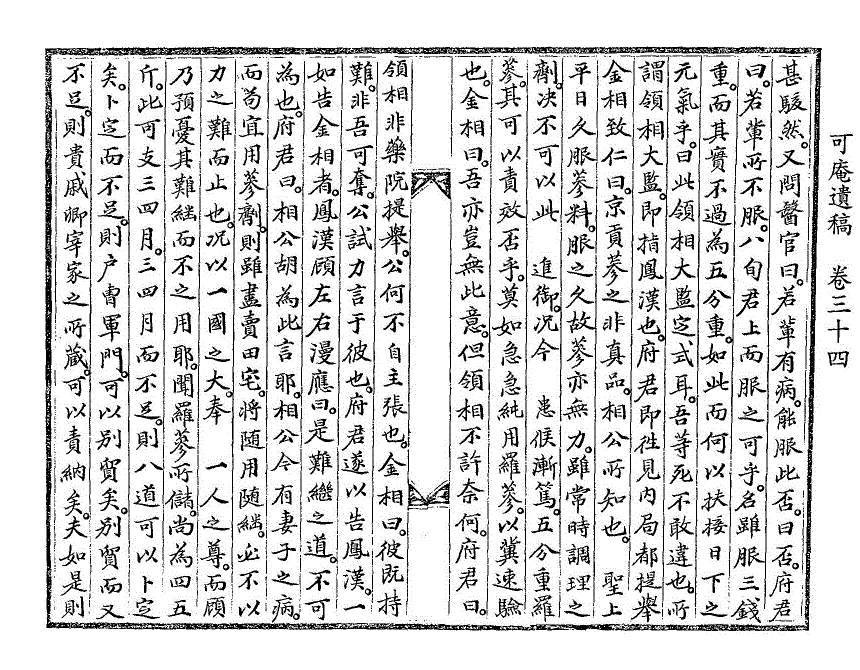 可庵遺稿　卷三十四
甚駭然。又問醫官曰。若輩有病。能服此否。曰否。府君
曰。若輩所不服。八旬君上而服之可乎。名雖服三錢
重。而其實不過爲五分重。如此而何以扶接日下之
元氣乎。曰此領相大監定式耳。吾等死不敢違也。所
謂領相大監。卽指鳳漢也。府君卽往見內局都提擧
金相致仁曰。京貢蔘之非眞品。相公所知也。　聖上
平日久服蔘料。服之久故蔘亦無力。雖常時調理之
劑。决不可以此　進御。况今　患候漸篤。五分重羅
蔘。其可以責效否乎。莫如急急純用羅蔘。以冀速驗
也。金相曰。吾亦豈無此意。但領相不許奈何。府君曰。
領相非藥院提擧。公何不自主張也。金相曰。彼旣持
難。非吾可奪。公試力言于彼也。府君遂以告鳳漢。一
如告金相者。鳳漢顧左右漫應曰。是難繼之道。不可
爲也。府君曰。相公胡爲此言耶。相公今有妻子之病。
而苟宜用蔘劑。則雖盡賣田宅。將隨用隨繼。必不以
力之難而止也。况以一國之大。奉　一人之尊。而顧
乃預憂其難繼而不之用耶。聞羅蔘所儲。尙爲四五
斤。此可支三四月。三四月而不足。則八道可以卜定
矣。卜定而不足。則戶曹軍門。可以別貿矣。別貿而又
不足。則貴戚卿宰家之所藏。可以責納矣。夫如是則